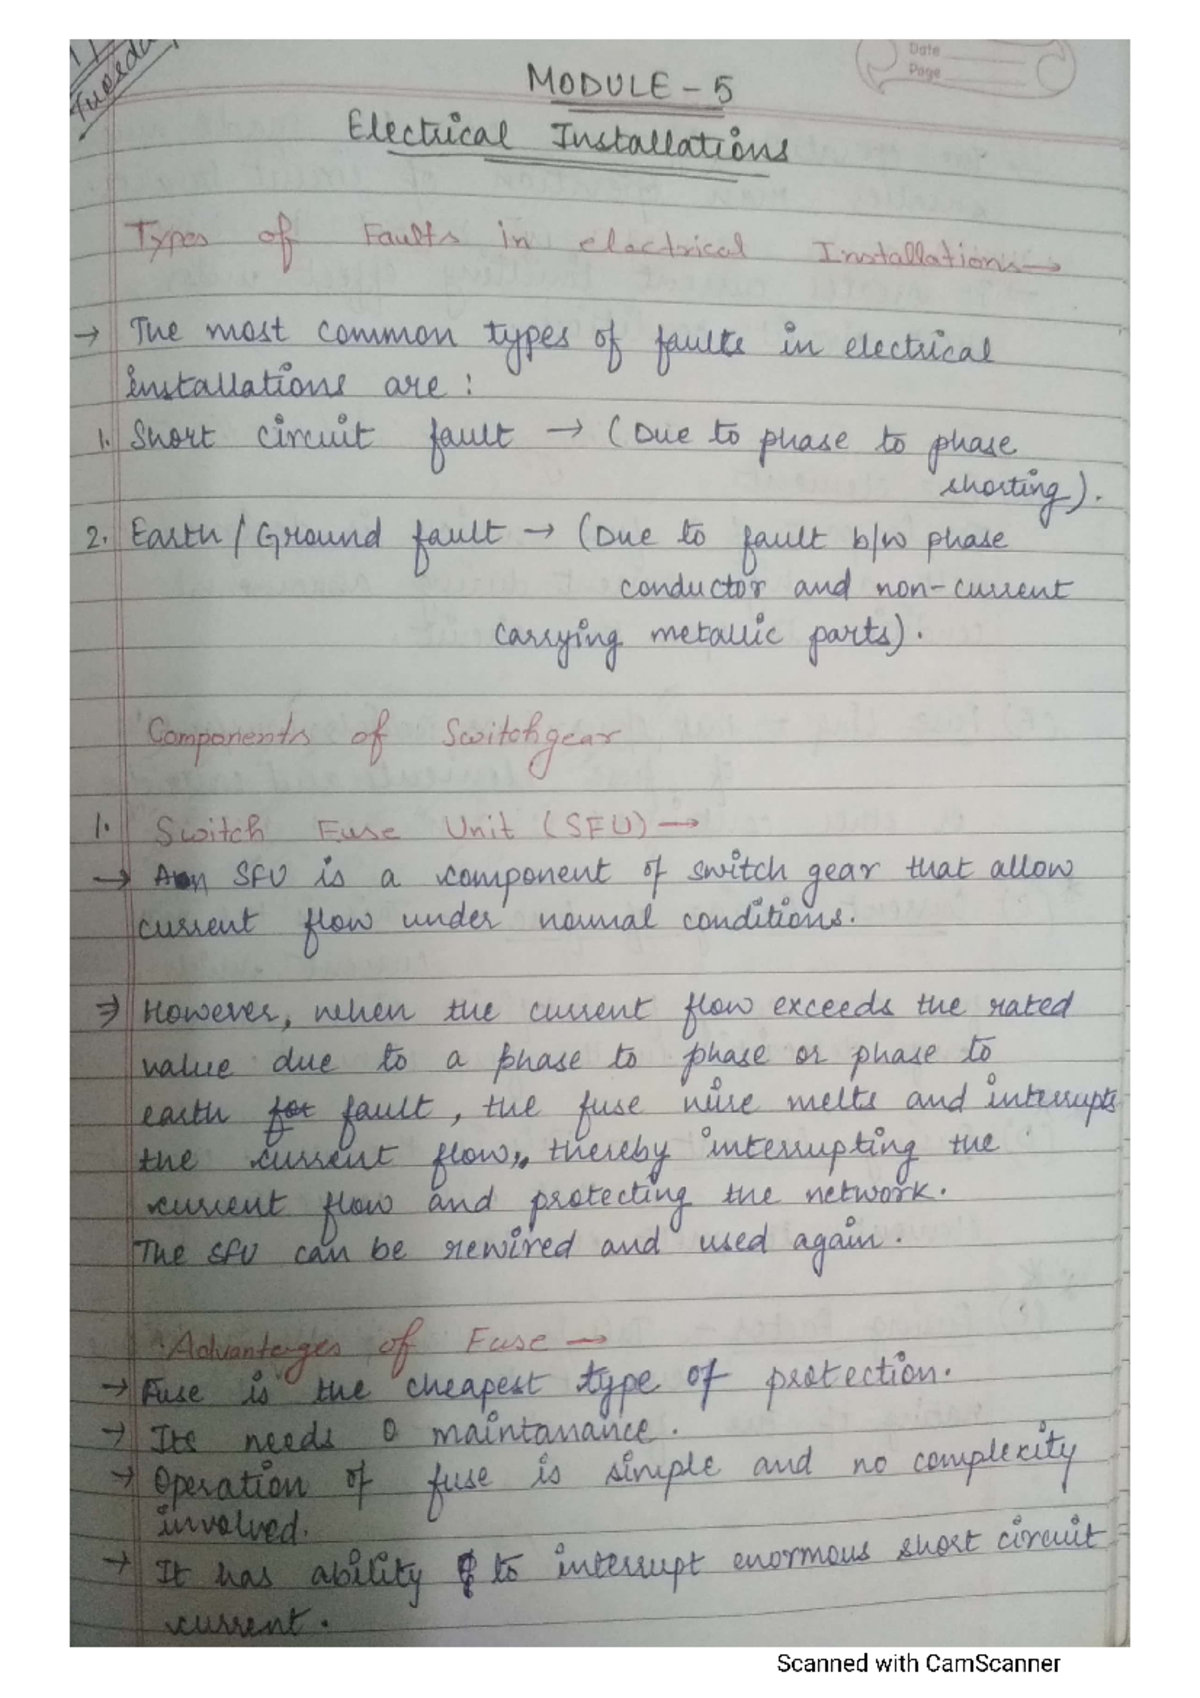 Tuesday
Date
Page
MODULE - 5
Electrical Installations
Types of Faults in electrical Installations→
→ The most common types of faults in electrical
installations are :
1. Short circuit fault → (Due to phase to phase
shorting).
2. Earth / Ground fault → (Due to fault b/w phase
conductor and non-current
carrying metallic parts).
Components of Switchgear
1. Switch Fuse Unit (SFU) →
→ An SFU is a component of switch gear that allow
current flow under normal conditions.
⇒ However, when the current flow exceeds the rated
value due to a phase to phase or phase to
earth fault, the fuse wire melts and interrupts
the current flow, thereby interrupting the
current flow and protecting the network.
The SFU can be rewired and used again.
Advantages of Fuse →
→ Fuse is the cheapest type of protection.
→ Its needs 0 maintanance.
→ Operation of fuse is simple and no complexity
involved.
→ It has ability to interrupt enormous short circuit
current.
Scanned with CamScanner